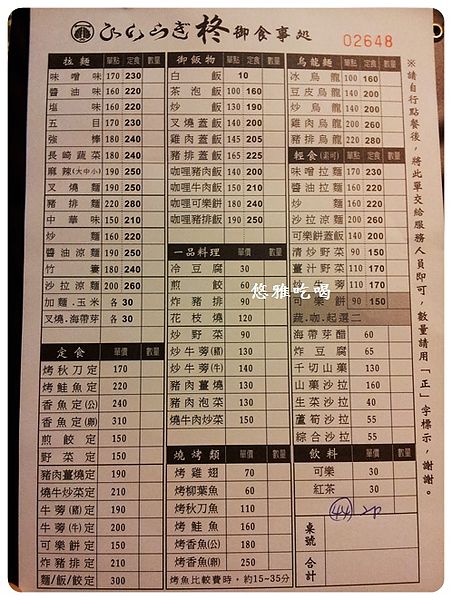 ひいらぎ 柊 御食事処
02648
拉麵 單點 定食 數量
味噌味 170 230
醬油味 160 220
塩味 160 220
五目 170 230
強棒 180 240
長崎蔬菜 180 240
麻辣(大中小) 190 250
叉燒麵 190 250
豬排麵 180 240
中華味 150 210
炒麵 160 220
醬油涼麵 190 250
竹簍 180 240
沙拉涼麵 200 260
加麵.玉米 各30
叉燒.海帶芽 各30
定食 單價 數量
烤秋刀定 170
烤鮭魚定 220
香魚定(公) 240
香魚定(卵) 310
煎餃定 150
野菜定 150
豬肉薑燒定 190
燒牛炒菜定 210
牛蒡(豬)定 190
牛蒡(牛)定 200
可樂餅定 150
炸豬排定 210
麵/飯/餃定 300
御飯物 單點 定食 數量
白飯 10
茶泡飯 100 160
炒飯 130 190
叉燒蓋飯 145 205
雞肉蓋飯 145 205
豬排蓋飯 165 225
咖哩豬肉飯 140 200
咖哩牛肉飯 150 210
咖哩可樂餅 180 240
咖哩豬排飯 190 250
一品料理 單價 數量
冷豆腐 30
煎餃 60
炸豬排 90
花枝燒 120
炒野菜 90
炒牛蒡(豬) 130
炒牛蒡(牛) 140
豬肉薑燒 130
豬肉泡菜 130
燒牛肉炒菜 150
燒烤類 單價 數量
烤雞翅 70
烤柳葉魚 60
烤秋刀魚 110
烤鮭魚 160
烤香魚(公) 180
烤香魚(卵) 250
烤魚比較費時，約15~35分
烏龍麵 單點 定食 數量
冰烏龍 100 160
豆皮烏龍 140 200
炒烏龍 140 200
雞肉烏龍 200 260
豬排烏龍 220 280
輕食(素可) 單點 定食 數量
味噌拉麵 160 220
醬油拉麵 160 220
炒麵 160 220
沙拉涼麵 200 260
可樂餅蓋飯 140 200
清炒野菜 90 150
薑汁野菜 110 170
炒牛蒡 110 170
可樂餅 90 150
蔬.咖.起選二
海帶芽醋 60
炸豆腐 65
千切山藥 130
山藥沙拉 130
生菜沙拉 40
蘆筍沙拉 55
綜合沙拉 55
飲料 單價 數量
可樂 30
紅茶 30
44
桌號
合計
※請自行點餐後，將此單交給服務人員即可，數量請用「正」字標示，謝謝。
悠雅吃喝